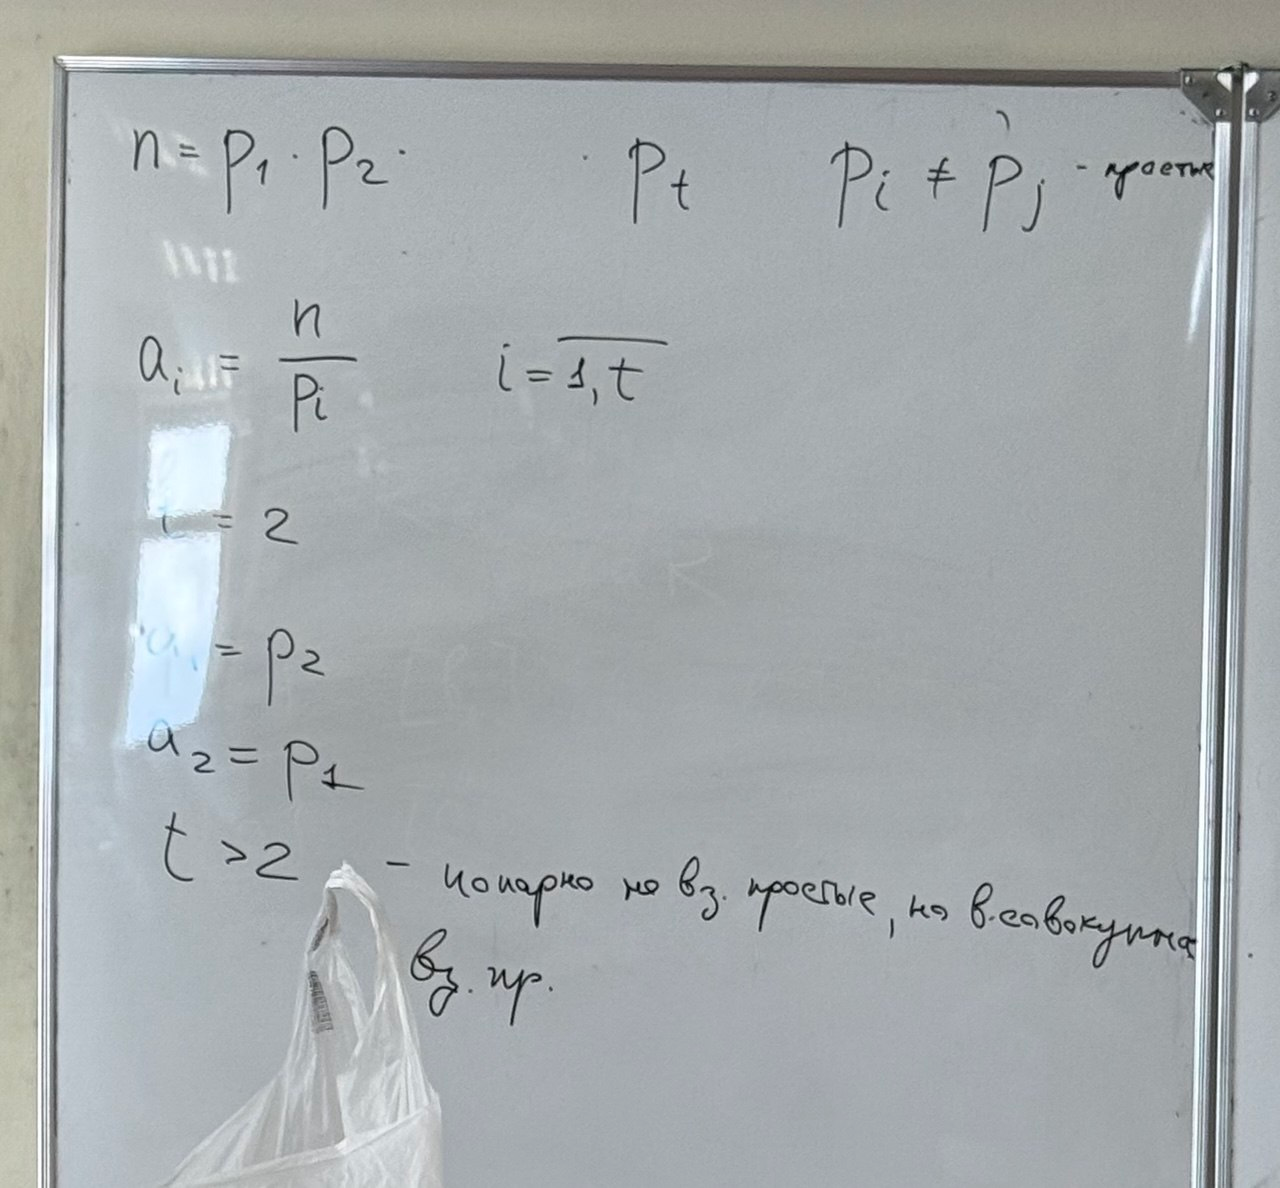 n = p₁ · p₂ · · pₜ pᵢ ≠ pⱼ - простые
aᵢ = n/pᵢ i = \overline{1, t}
t = 2
a₁ = p₂
a₂ = p₁
t > 2 - попарно не вз. простые, но в совокупно
вз. пр.